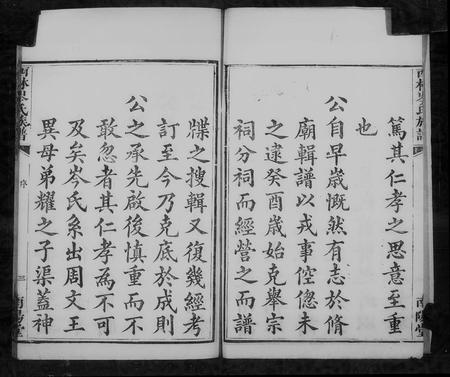 篤其仁孝之思意至重
也
公自早歲慨然有志於脩
廟輯譜以戎事倥偬未
之逮癸酉歲始克舉宗
祠分祠而經營之而譜
牒之搜輯又復幾經考
訂至今乃克底於成則
公之承先啟後慎重而不
敢忽者其仁孝為不可
及矣岑氏系出周文王
異母弟耀之子渠蓋神
西林岑氏族譜
序
三
南陽堂
西林岑氏族譜
南陽堂